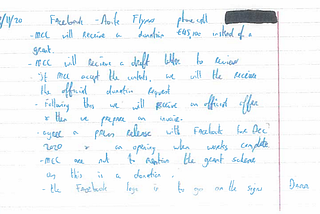 /11/20 Facebook - Aoife Flynn phone call
- MCC will receive a donation €45,000 instead of a
grant.
- MCC will receive a draft letter to review
- If MCC accept the we will the receive
the official donation request
- Following this we will receive an official offer
& then we prepare an invoice.
- agree a press release with Facebook Dec
2020 & an opening when works complete
- MCC are not to mention the grant scheme
as this is a donation.
- the Facebook logo is to go on the signs